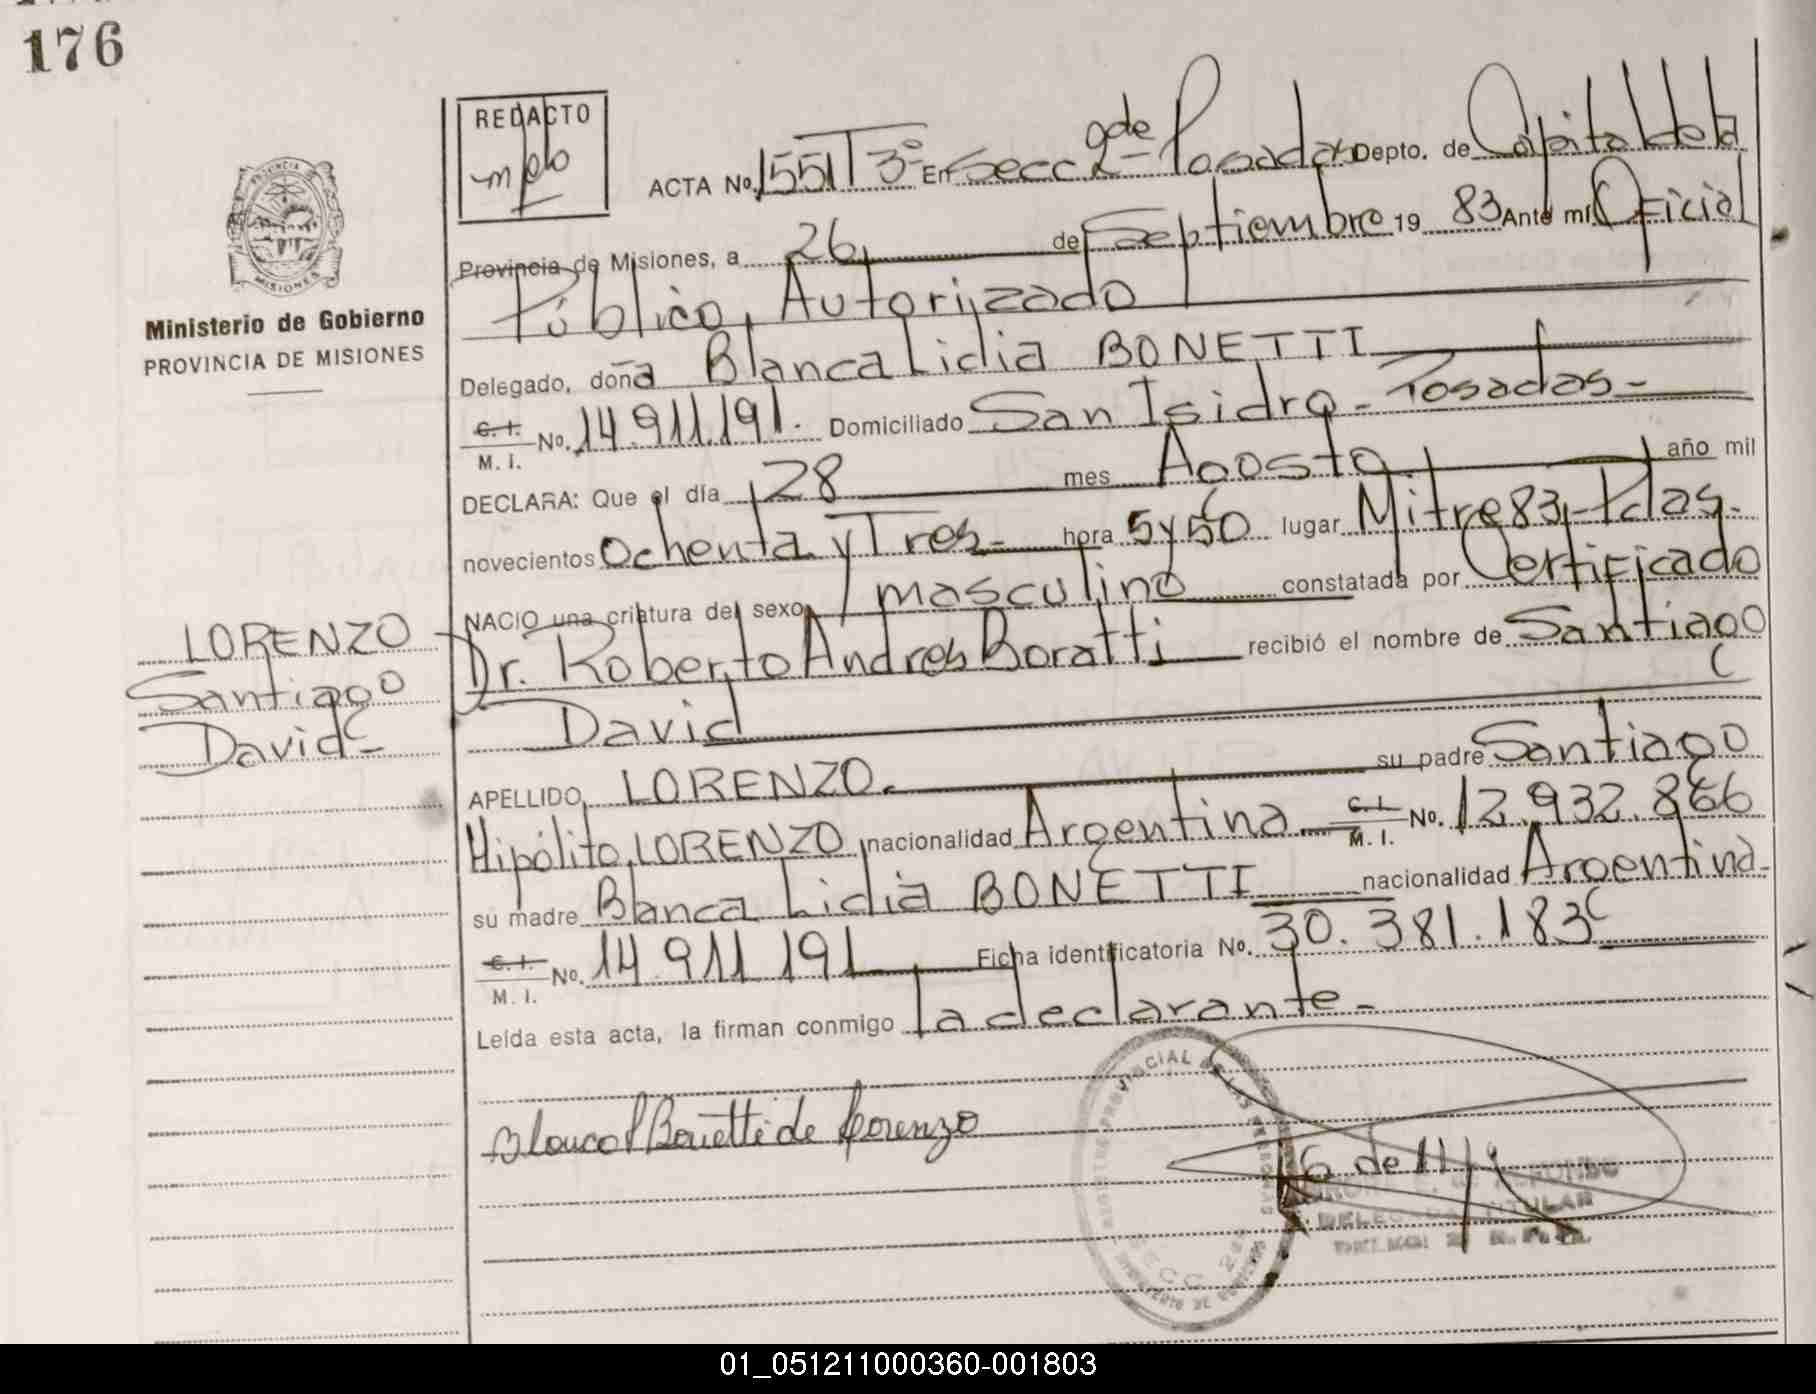 176
REDACTO
ACTA No. 1551 T 3º En Secc 2da de Posadas Depto. de Capital de la
Provincia de Misiones, a 26 de Septiembre 19 83 Ante mí Oficial
Público, Autorizado
Delegado, doña Blanca Lidia BONETTI
C. I. No. 14.911.191. Domiciliado San Isidro - Posadas -
M. I.
DECLARA: Que el día 28 mes Agosto año mil
novecientos Ochenta y Tres - hora 5 y 50 lugar Mitre 83, Pdas. -
NACIO una criatura del sexo masculino constatada por Certificado
Dr. Roberto Andres Boratti recibió el nombre de Santiago
David
APELLIDO LORENZO. su padre Santiago
Hipólito, LORENZO nacionalidad Argentina C. I. No. 12.932.866
M. I.
su madre Blanca Lidia BONETTI nacionalidad Argentina -
C. I. No. 14.911.191 Ficha identificatoria No. 30.381.183
M. I.
Leída esta acta, la firman conmigo la declarante -
Blanca L Bonetti de Lorenzo
PROVINCIA
MISIONES
Ministerio de Gobierno
PROVINCIA DE MISIONES
LORENZO
Santiago
David -
PROVINCIAL DE LAS PERSONAS
SECC 2da
DELEGADA TITULAR
01_051211000360-001803